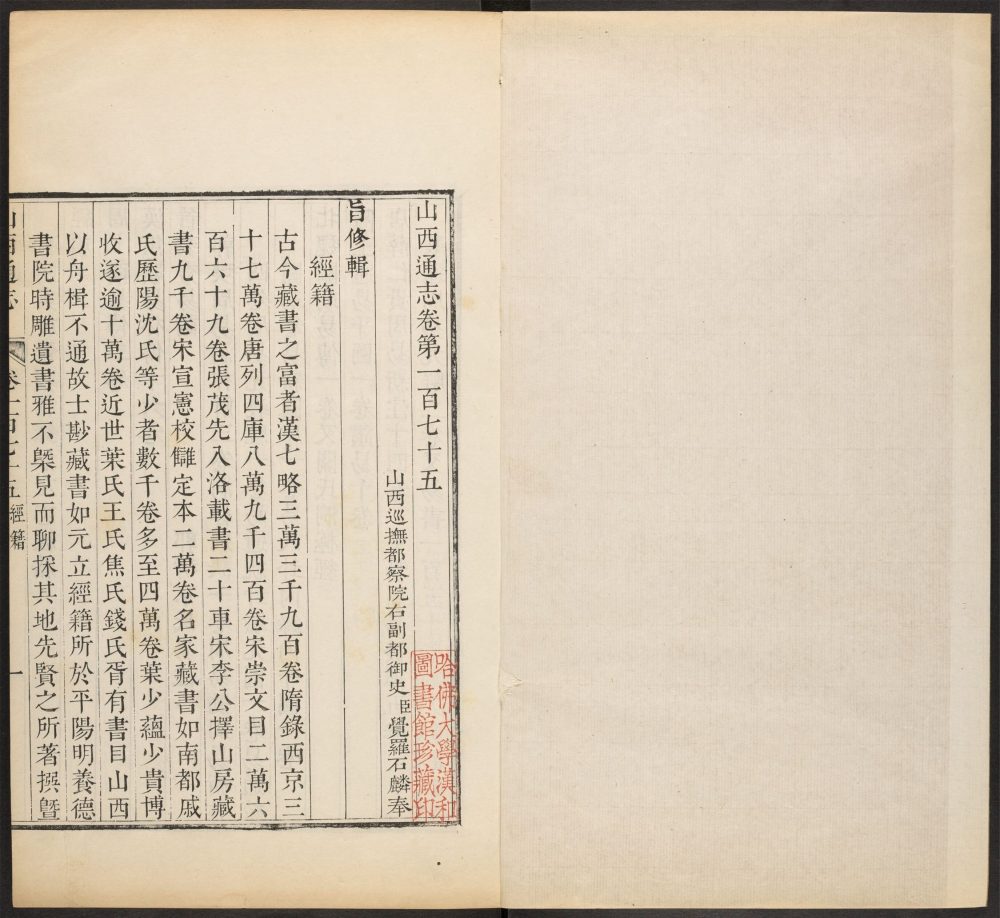 山西通志卷第一百七十五
山西巡撫都察院右副都御史臣覺羅石麟奉
旨修輯
經籍
古今藏書之富者漢七略三萬三千九百卷隋錄西京三
十七萬卷唐列四庫八萬九千四百卷宋崇文目二萬六
百六十九卷張茂先入洛載書二十車宋李公擇山房藏
書九千卷宋宣憲校讎定本二萬卷名家藏書如南都戚
氏歷陽沈氏等少者數千卷多至四萬卷葉少蘊少貴博
收遂逾十萬卷近世葉氏王氏焦氏錢氏胥有書目山西
以舟楫不通故士尠藏書如元立經籍所於平陽明養德
書院時雕遺書雅不槩見而聊採其地先賢之所著撰暨
山西通志
卷一百七十五
經籍
一
哈佛大學漢和
圖書館珍藏印